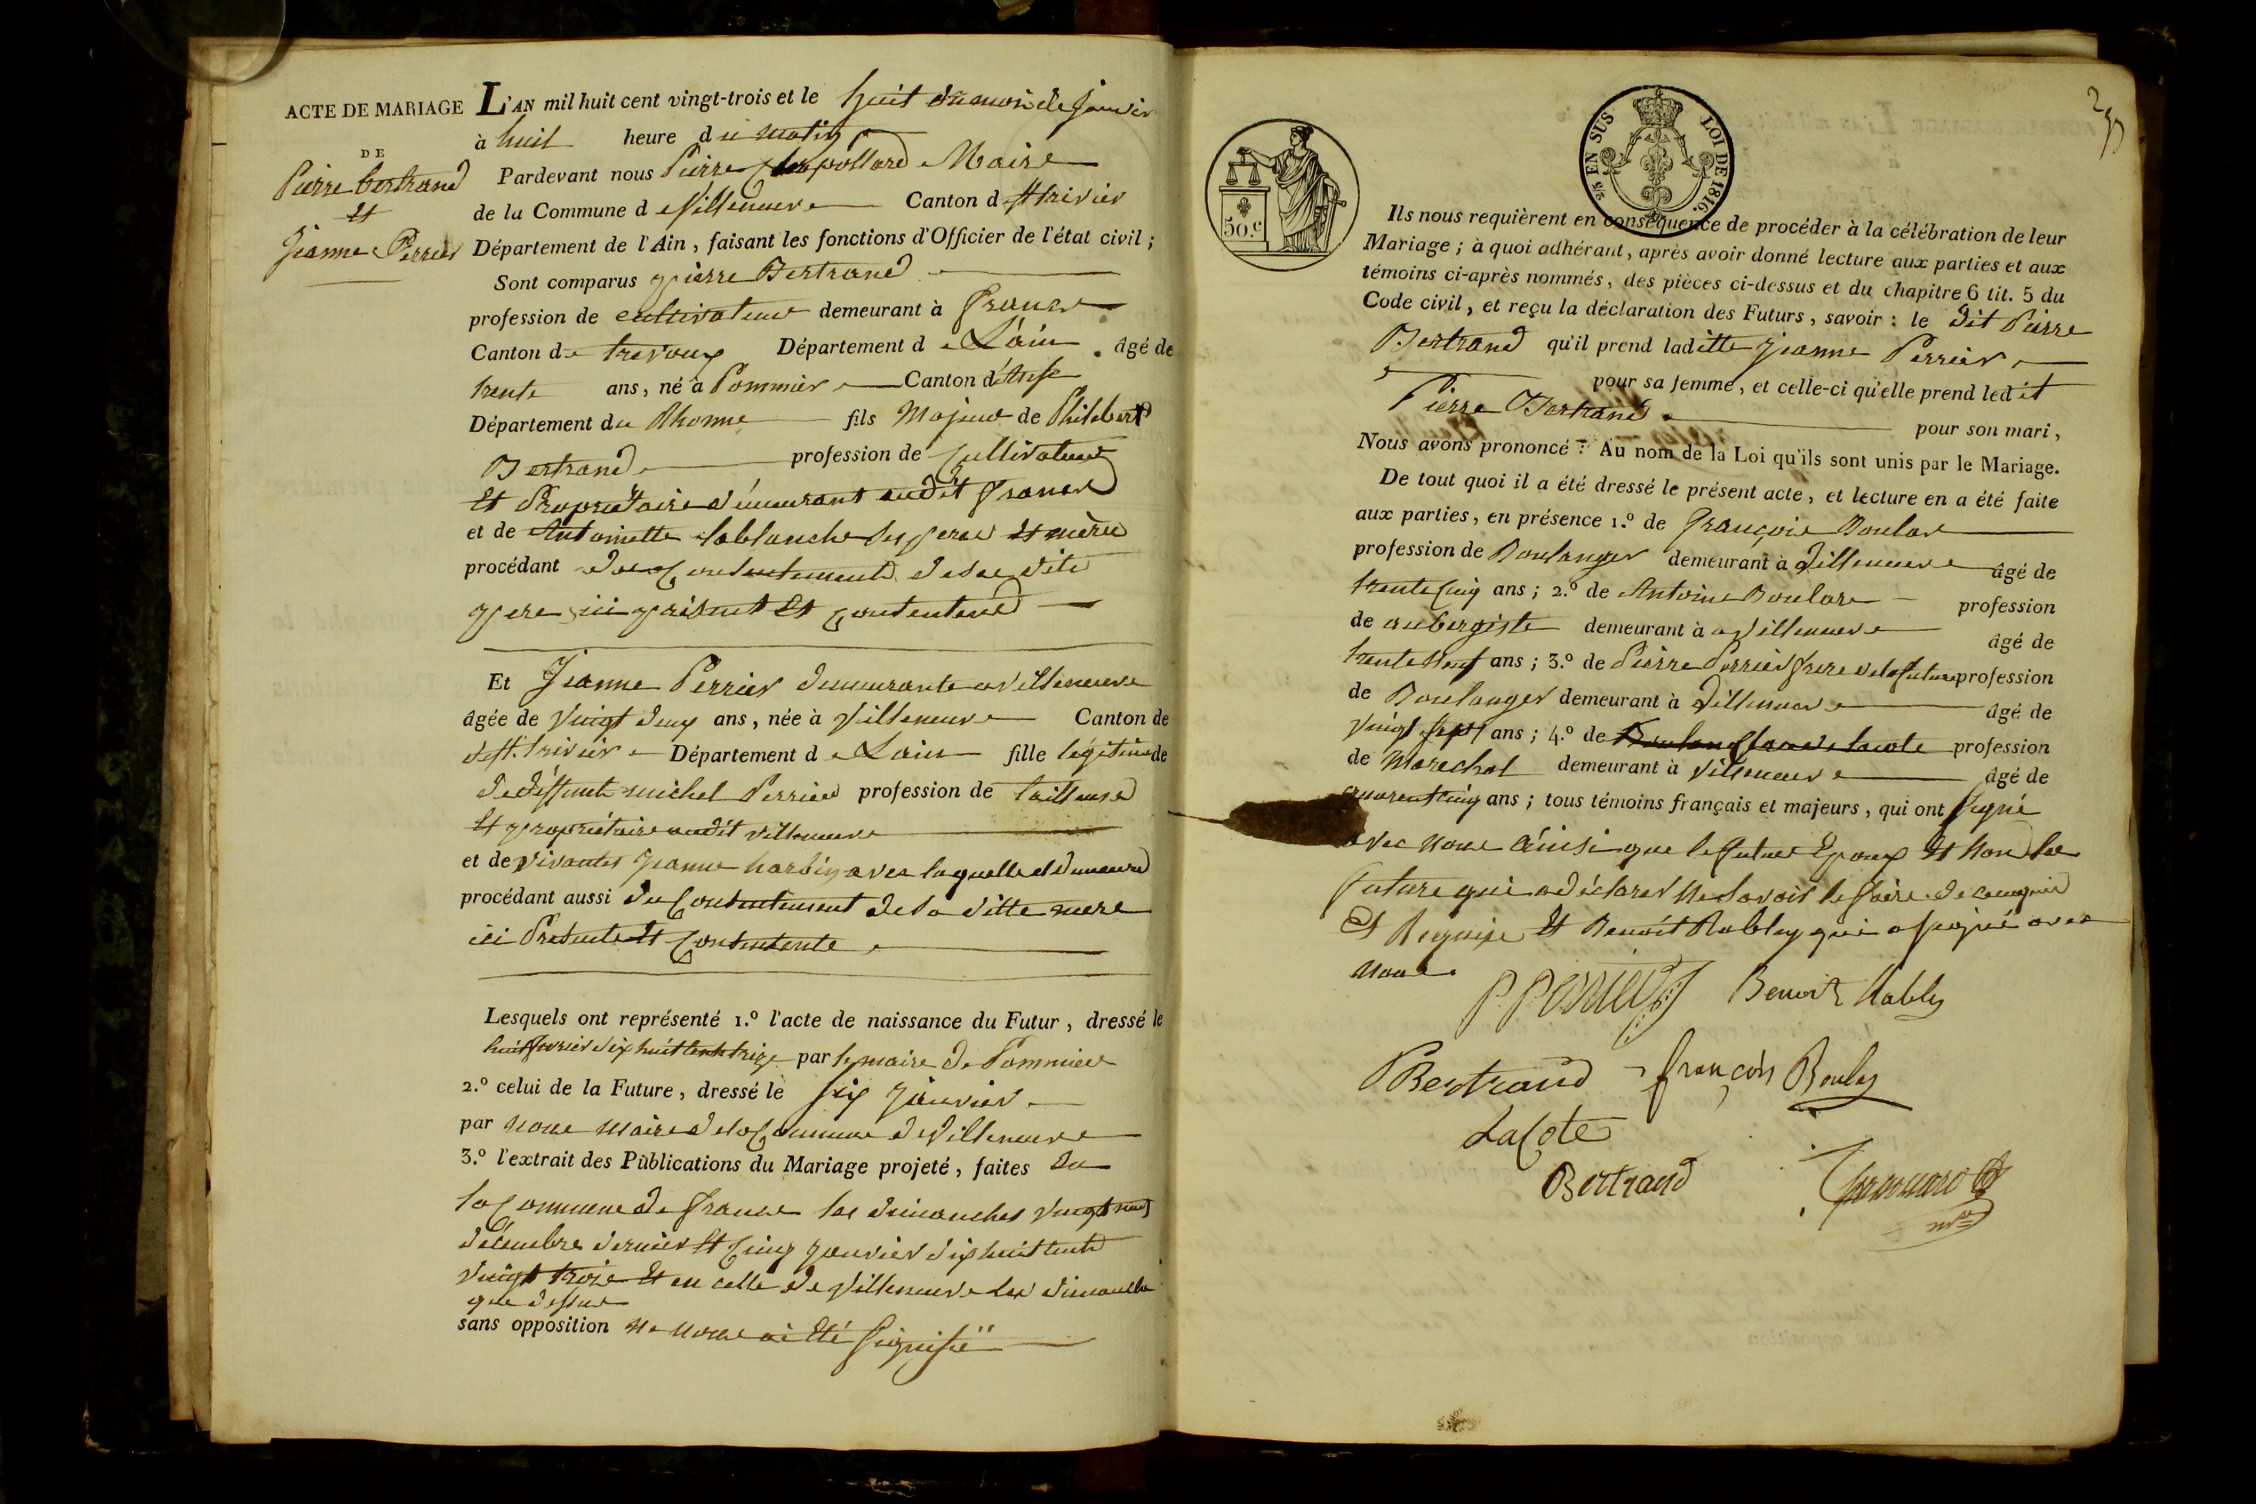 ACTE DE MARIAGE
DE
Pierre bertrand
Et
Jeanne Perrier
L'AN mil huit cent vingt-trois et le huit du mois de Janvier
à huit heure du matin
Pardevant nous Pierre Maire
de la Commune de Villeneuve Canton de St trivier
Département de l'Ain, faisant les fonctions d'Officier de l'état civil;
Sont comparus pierre Bertrand
profession de cultivateur demeurant à francs
Canton de trevoux Département de L'ain âgé de
trente ans, né à Pommier Canton d'Anse
Département du Rhonne fils Majeur de Philibert
Bertrand profession de Cultivateur
Et Proprietaire demeurant audit francs
et de Antoinette lablanche ses pere et mère
procédant du Consentement de son dit
pere ici present Et Consentend
Et Jeanne Perrier demeurante a villeneuve
âgée de Vingt deux ans, née à Villeneuve Canton de
de St. trivier Département de Lain fille légitime de
de deffunt michel Perrier profession de tailleur
Et propriétaire audit villeneuve
et de vivante Jeanne avec laquelle el demeure
procédant aussi du Consentement de sa ditte mere
ici Presente Et Consentente
Lesquels ont représenté 1.º l'acte de naissance du Futur, dressé le
par le maire de Pommier
2.º celui de la Future, dressé le six Janvier
par nous maire de la Commune de Villeneuve
3.º l'extrait des Publications du Mariage projeté, faites du
la Commune de francs les dimanches Vingt neuf
décembre dernier Et Cinq Janvier dix huit cent
Vingt trois Et en celle de Villeneuve les dimanche
que dessus
sans opposition ne nous ai été signifié
297
5/10 EN SUS LOI DE 1816.
50.c
Ils nous requièrent en conséquence de procéder à la célébration de leur
Mariage; à quoi adhérant, après avoir donné lecture aux parties et aux
témoins ci-après nommés, des pièces ci-dessus et du chapitre 6 tit. 5 du
Code civil, et reçu la déclaration des Futurs, savoir: le dit Pierre
Bertrand qu'il prend laditte Jeanne Perrier
pour sa femme, et celle-ci qu'elle prend ledit
Pierre Bertrand pour son mari,
Nous avons prononcé: Au nom de la Loi qu'ils sont unis par le Mariage.
De tout quoi il a été dressé le présent acte, et lecture en a été faite
aux parties, en présence 1.º de françois Boulas
profession de Boulanger demeurant à Villeneuve âgé de
trente Cinq ans; 2.º de Antoine Boulas profession
de aubergiste demeurant à Villeneuve âgé de
trente neuf ans; 3.º de Pierre Perrier frere de la future profession
de Boulanger demeurant à Villeneuve âgé de
vingt sept ans; 4.º de lacote profession
de Marechal demeurant à Villeneuve âgé de
quarent Cinq ans; tous témoins français et majeurs, qui ont signé
avec nous ainsi que le futur Epoux Et non la
future qui a déclarer ne savoir le faire de ce enquis
Et Requise Et Benoit Nably qui a signé avec
nous.
P. Perrier Benoit Nably
PBertrand françois Boulas
LaCote
Bertrand